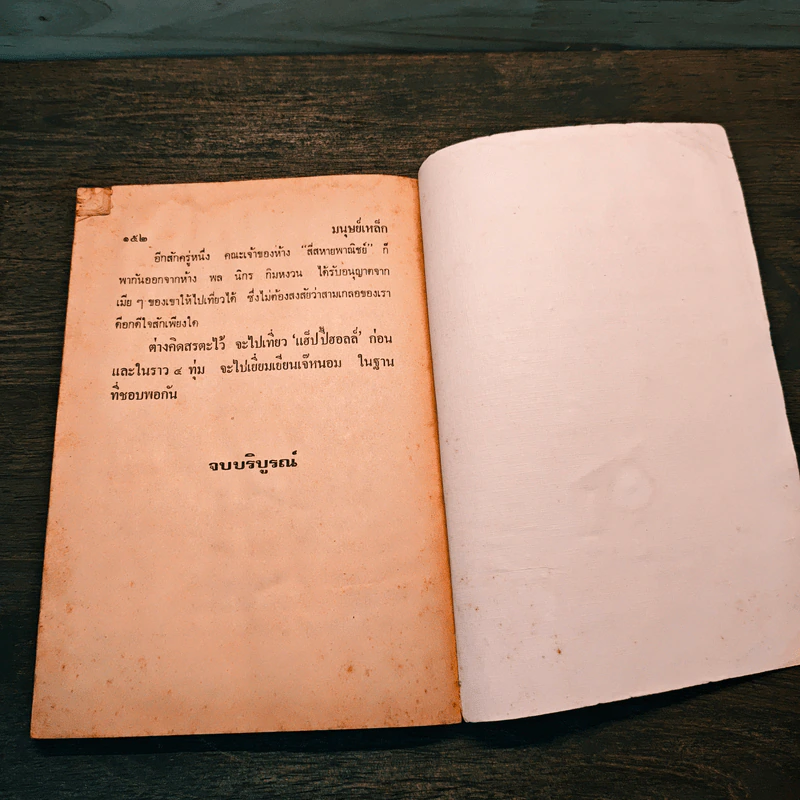 ๑๕๒ มนุษย์เหล็ก
อีกสักครู่หนึ่ง คณะเจ้าของห้าง “สี่สหายพาณิชย์” ก็
พากันออกจากห้าง พล นิกร กิมหงวน ได้รับอนุญาตจาก
เมีย ๆ ของเขาให้ไปเที่ยวได้ ซึ่งไม่ต้องสงสัยว่าสามเกลอของเรา
ดีอกดีใจสักเพียงใด
ต่างคิดสรตะไว้ จะไปเที่ยว ‘แฮ็ปปี้ฮอลล์’ ก่อน
และในราว ๔ ทุ่ม จะไปเยี่ยมเยียนเจ๊หนอม ในฐาน
ที่ชอบพอกัน
จบบริบูรณ์